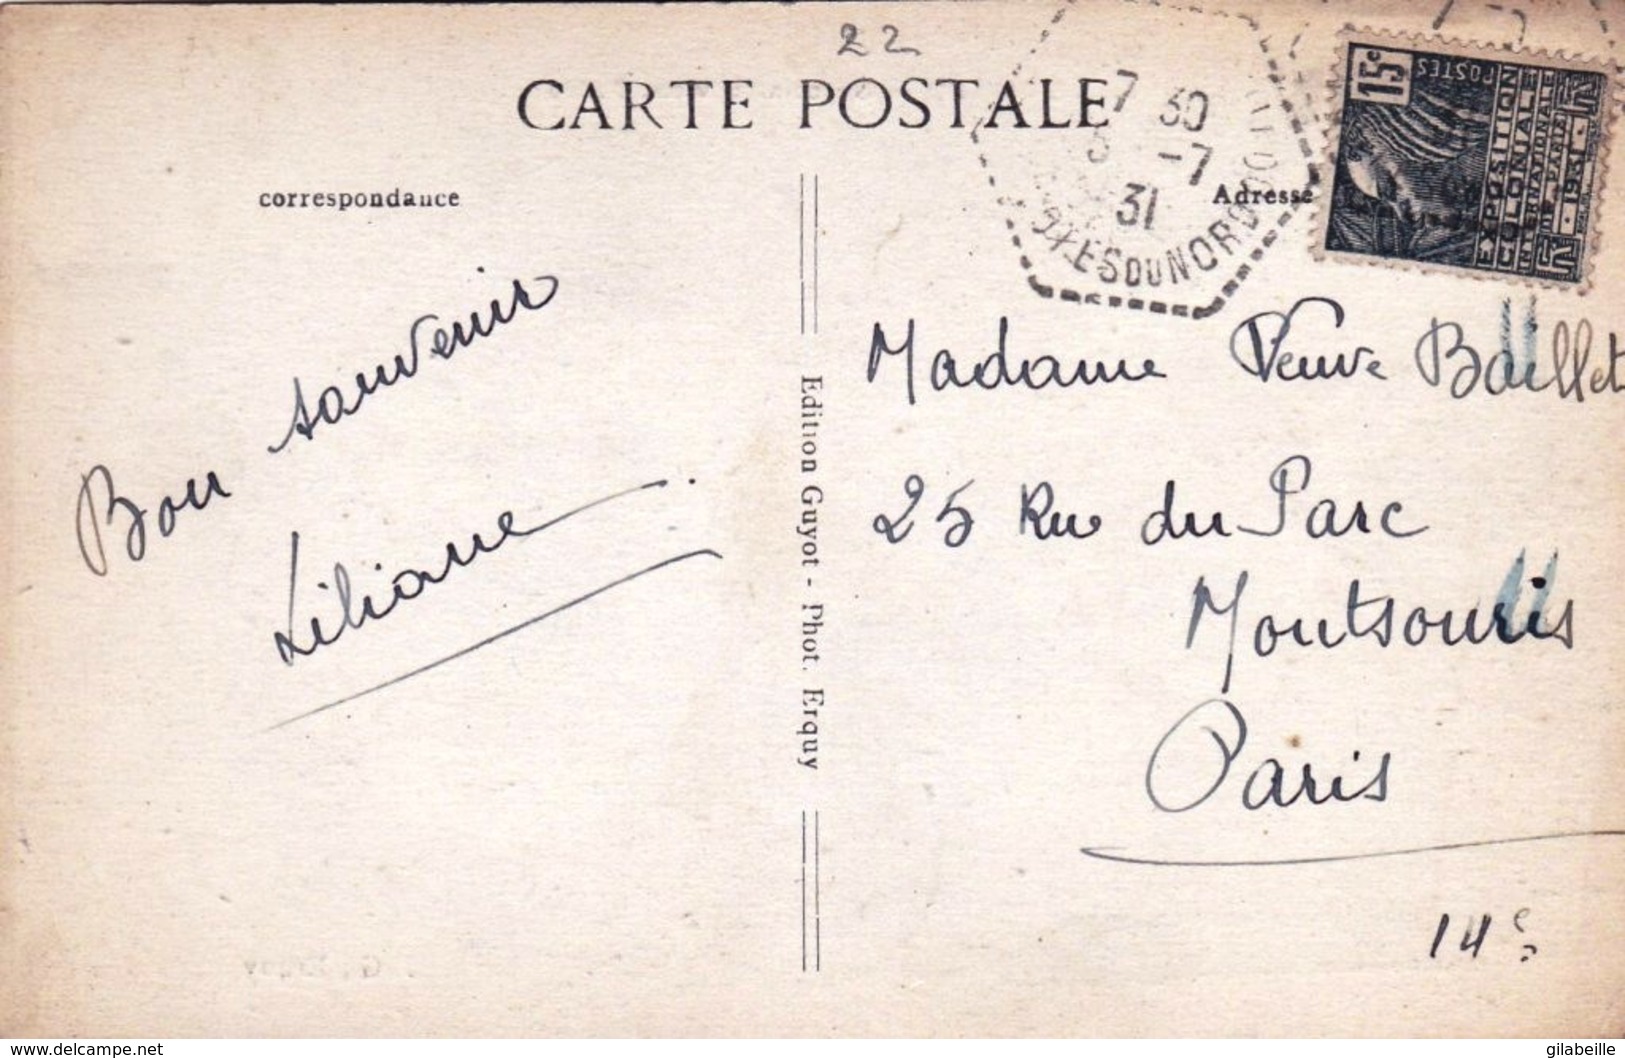 22
CARTE POSTALE
7 30
5 -7
31
DU NORD
15c
POSTES
EXPOSITION
COLONIALE
INTERNATIONALE
DE PARIS
1931
correspondance
Adresse
Bon souvenir
Liliane
Edition Guyot - Phot. Erquy
Madame Veuve Baillet
25 Rue du Parc
Montsouris
Paris
14e
www.delcampe.net
gilabeille